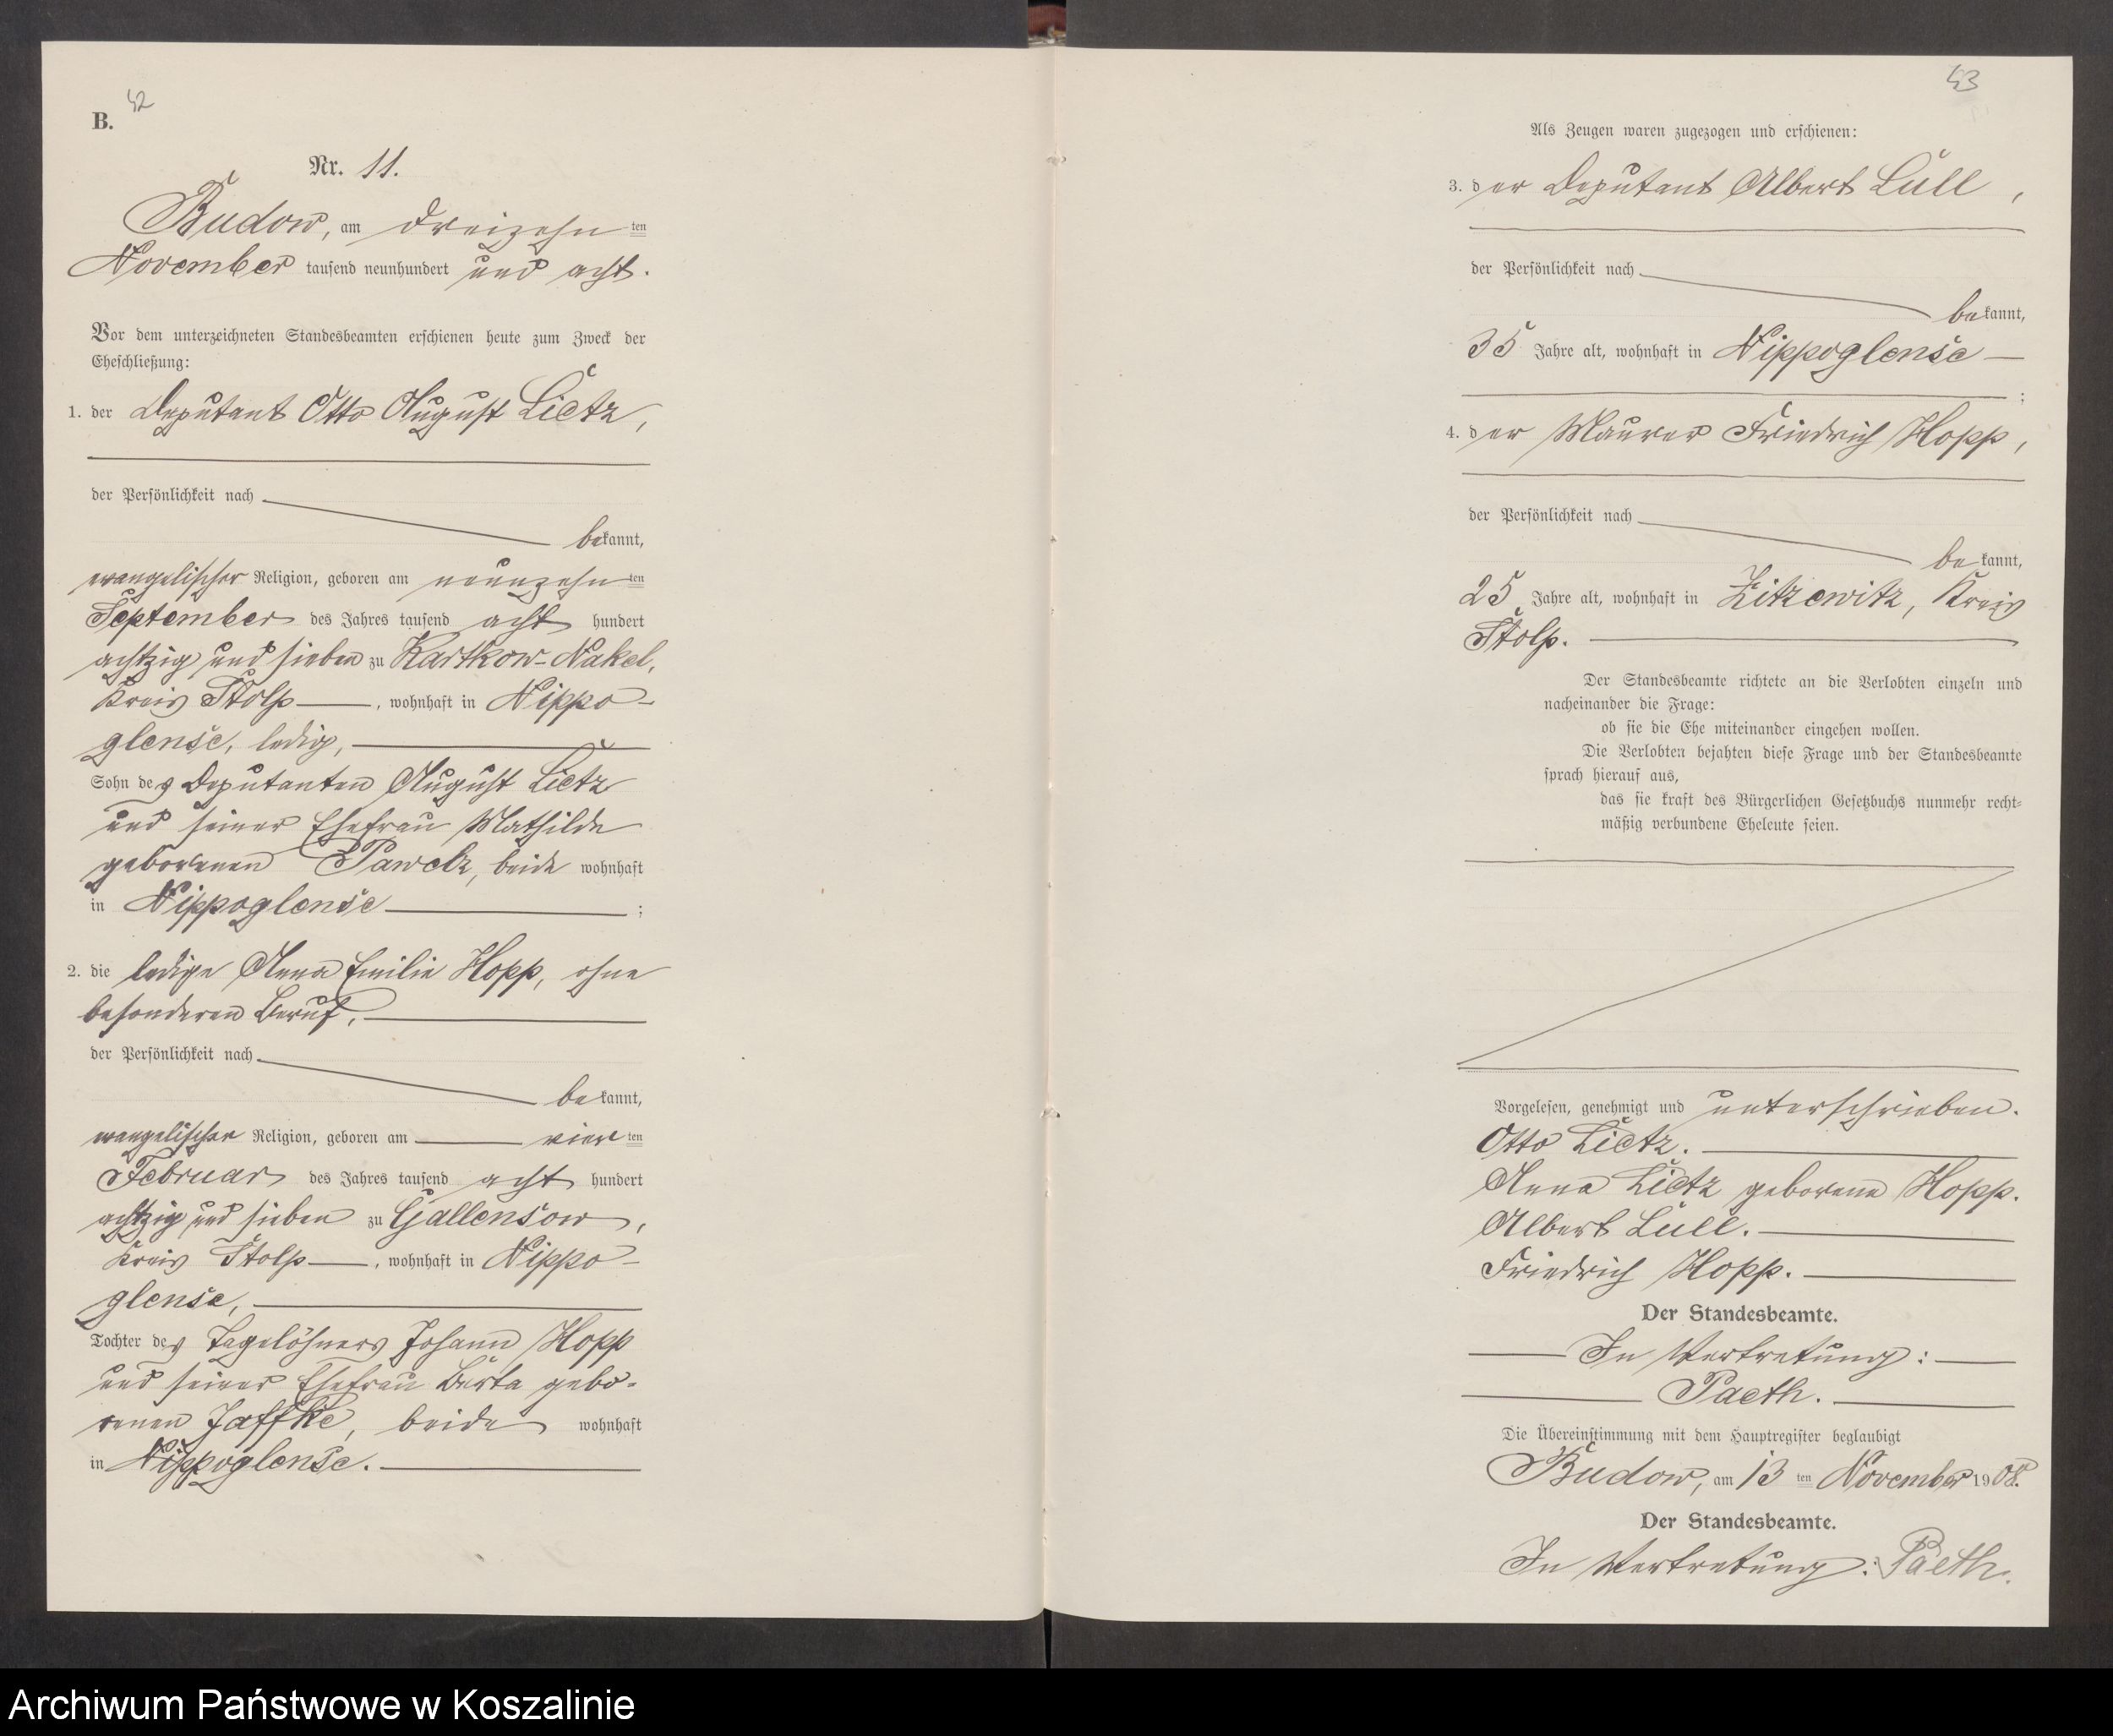 42
B.
Nr. 11.
Budow, am dreizehnten
November tausend neunhundert und acht.
Vor dem unterzeichneten Standesbeamten erschienen heute zum Zweck der
Eheschließung:
1. der Deputant Otto August Lietz,
der Persönlichkeit nach
bekannt,
evangelischer Religion, geboren am neunzehnten
September des Jahres tausend acht hundert
achtzig und sieben zu Kartkow-Nakel,
Kreis Stolp, wohnhaft in Nippo-
glense, ledig,
Sohn des Deputanten August Lietz
und seiner Ehefrau Mathilde
geborenen Pawelz, beide wohnhaft
in Nippoglense;
2. die ledige Anna Emilie Hopp, ohne
besonderen Beruf,
der Persönlichkeit nach
bekannt,
evangelischer Religion, geboren am vierten
Februar des Jahres tausend acht hundert
achtzig und sieben zu Gallensow,
Kreis Stolp, wohnhaft in Nippo-
glense,
Tochter des Tagelöhners Johann Hopp
und seiner Ehefrau Berta gebo-
renen Jaffke, beide wohnhaft
in Nippoglense.
43
Als Zeugen waren zugezogen und erschienen:
3. der Deputant Albert Lüll,
der Persönlichkeit nach
bekannt,
35 Jahre alt, wohnhaft in Nippoglense
;
4. der Maurer Friedrich Hopp,
der Persönlichkeit nach
bekannt,
25 Jahre alt, wohnhaft in Zitzewitz, Kreis
Stolp.
Der Standesbeamte richtete an die Verlobten einzeln und
nacheinander die Frage:
ob sie die Ehe miteinander eingehen wollen.
Die Verlobten bejahten diese Frage und der Standesbeamte
sprach hierauf aus,
das sie kraft des Bürgerlichen Gesetzbuchs nunmehr recht-
mäßig verbundene Eheleute seien.
Vorgelesen, genehmigt und unterschrieben.
Otto Lietz.
Anna Lietz geborene Hopp.
Albert Lüll.
Friedrich Hopp.
Der Standesbeamte.
In Vertretung:
Paeth.
Die Übereinstimmung mit dem Hauptregister beglaubigt
Budow, am 13ten November 1908.
Der Standesbeamte.
In Vertretung: Paeth.
Archiwum Państwowe w Koszalinie